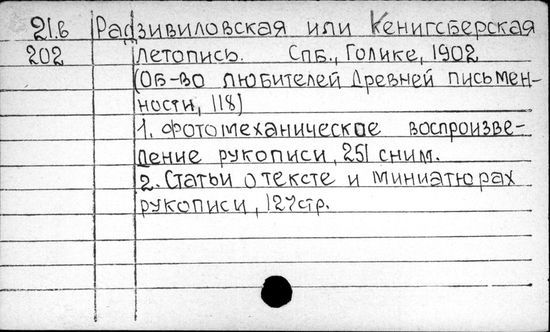 21.б Радзивиловская или Кенигсберская
202 летопись. Спб., Голике, 1902
(Об-во любителей Древней письмен-
ности, 118)
1. Фотомеханическое воспроизве-
дение рукописи, 251 сним.
2. Статьи о тексте и миниатюрах
рукописи, 127стр.